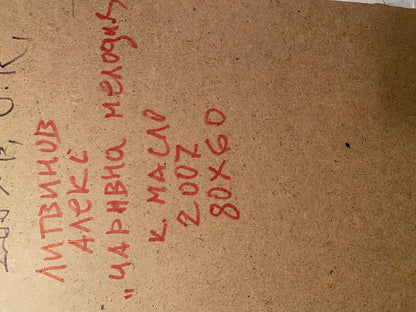 ЛИТВИНОВ
АЛЕКС
"ЧАРИВНА МЕЛОДИЯ
К. МАСЛО
2007
80X60